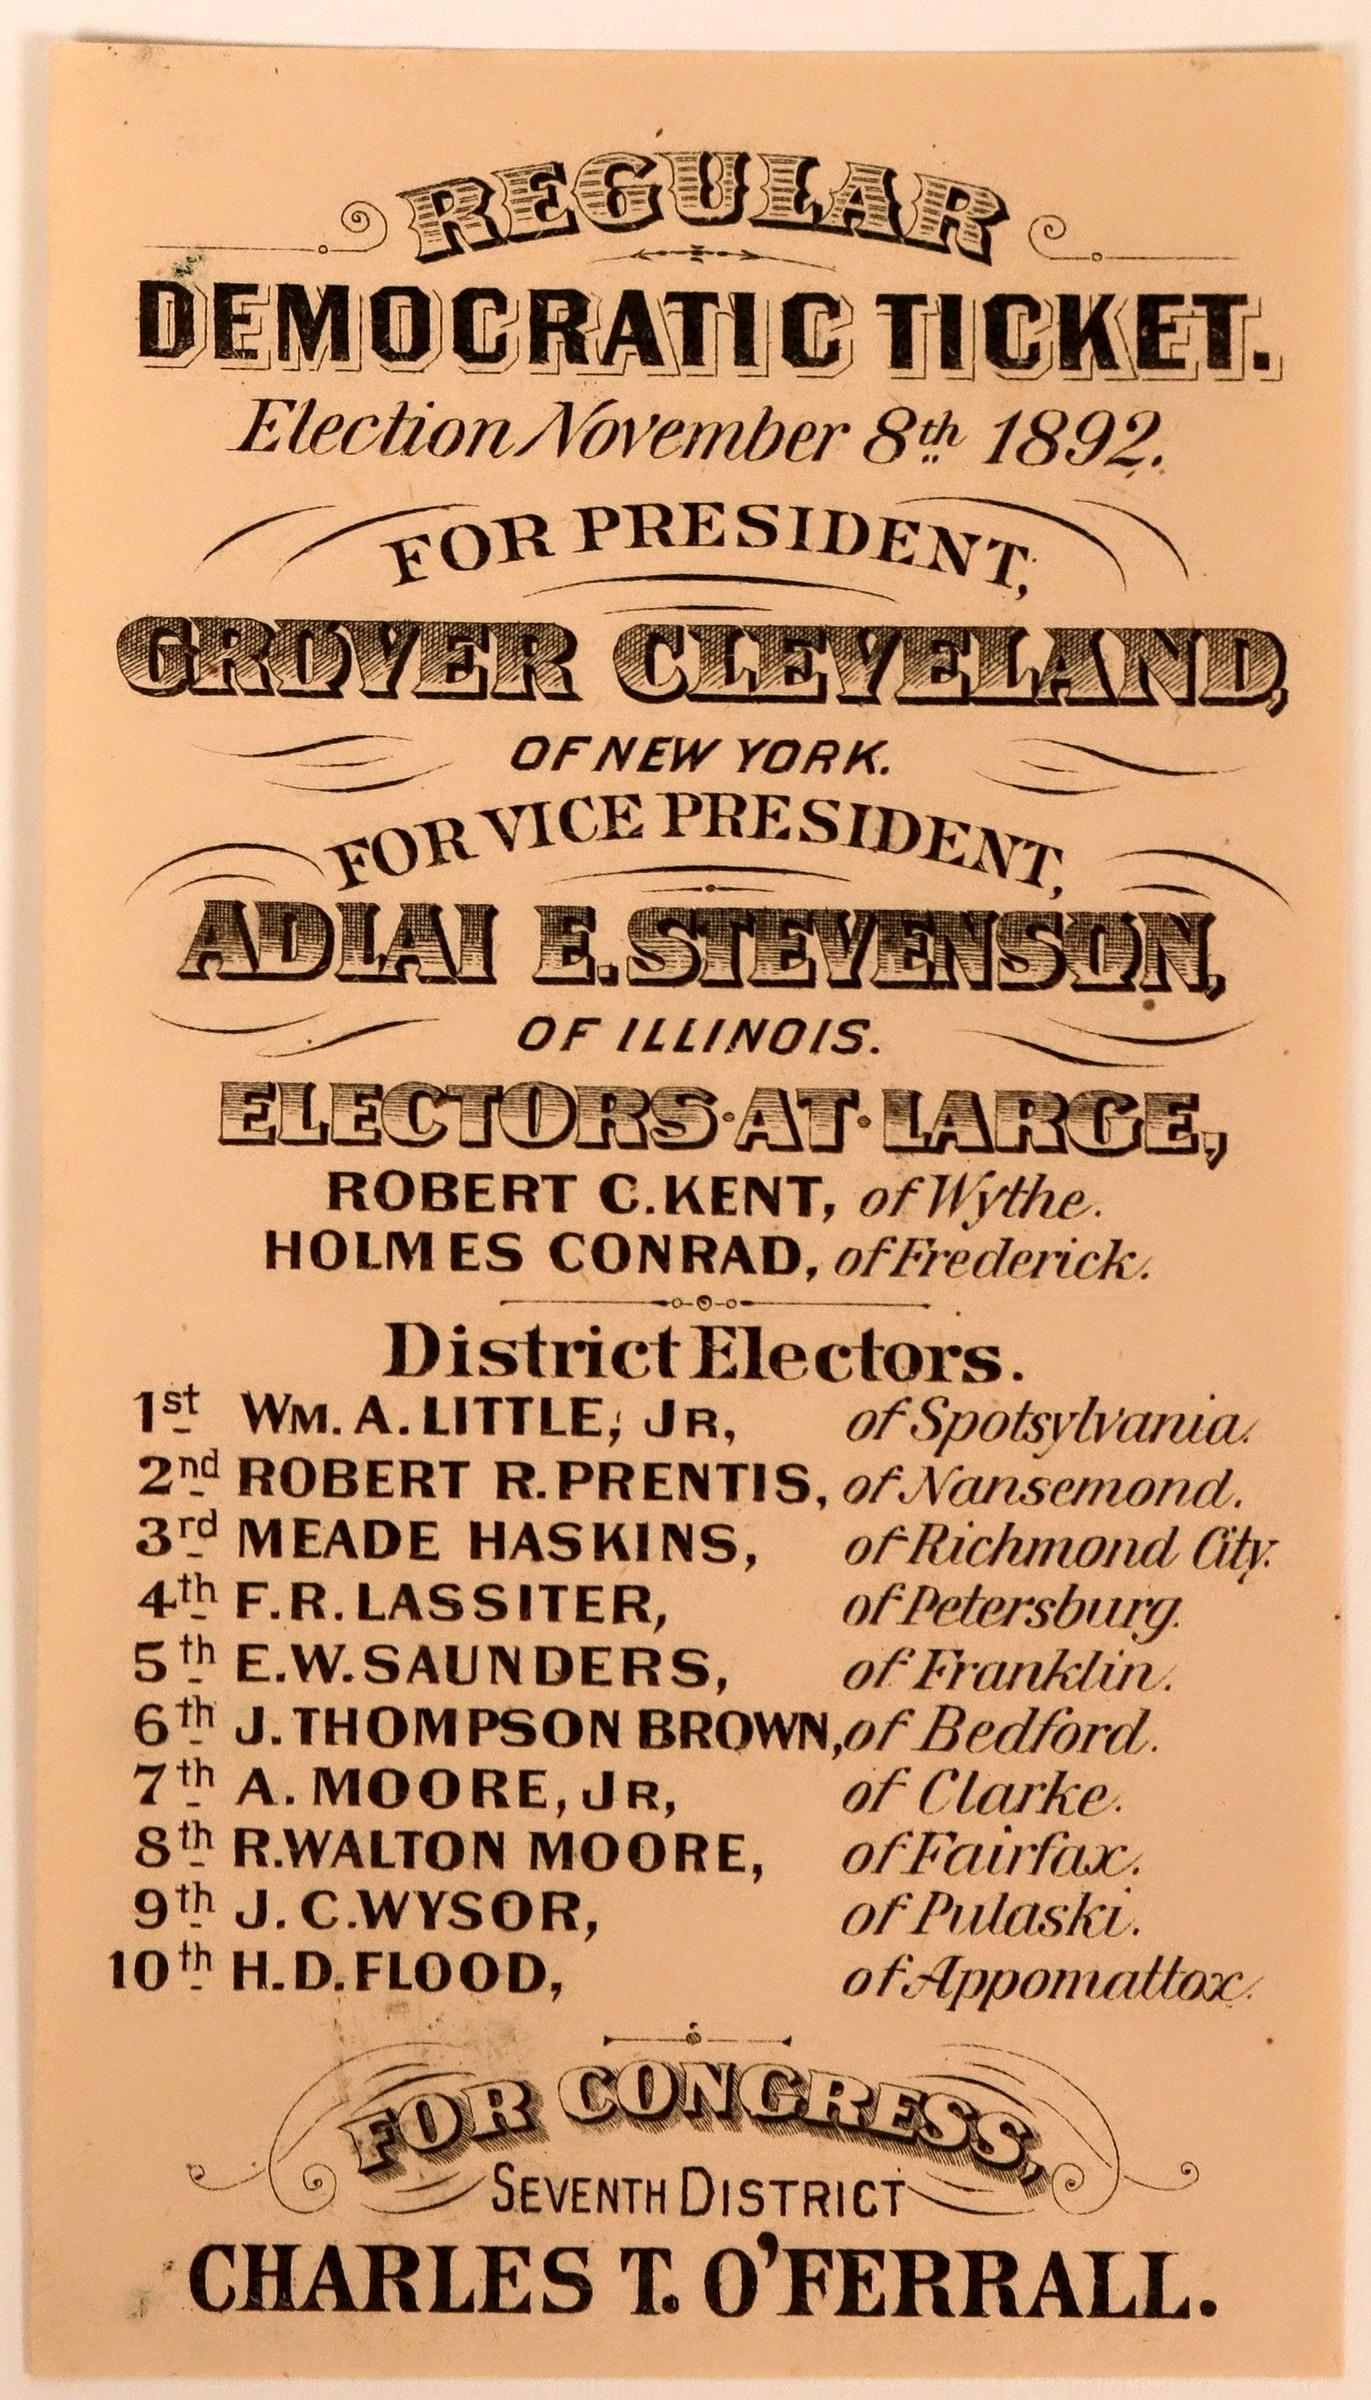 REGULAR
DEMOCRATIC TICKET.
Election November 8th 1892.
FOR PRESIDENT,
GROVER CLEVELAND,
OF NEW YORK.
FOR VICE PRESIDENT,
ADLAI E. STEVENSON,
OF ILLINOIS.
ELECTORS·AT·LARGE,
ROBERT C. KENT, of Wythe.
HOLMES CONRAD, of Frederick.
District Electors.
1st WM. A. LITTLE, JR, of Spotsylvania.
2nd ROBERT R. PRENTIS, of Nansemond.
3rd MEADE HASKINS, of Richmond City.
4th F. R. LASSITER, of Petersburg.
5th E. W. SAUNDERS, of Franklin.
6th J. THOMPSON BROWN, of Bedford.
7th A. MOORE, JR, of Clarke.
8th R. WALTON MOORE, of Fairfax.
9th J. C. WYSOR, of Pulaski.
10th H. D. FLOOD, of Appomattox.
FOR CONGRESS,
SEVENTH DISTRICT
CHARLES T. O'FERRALL.